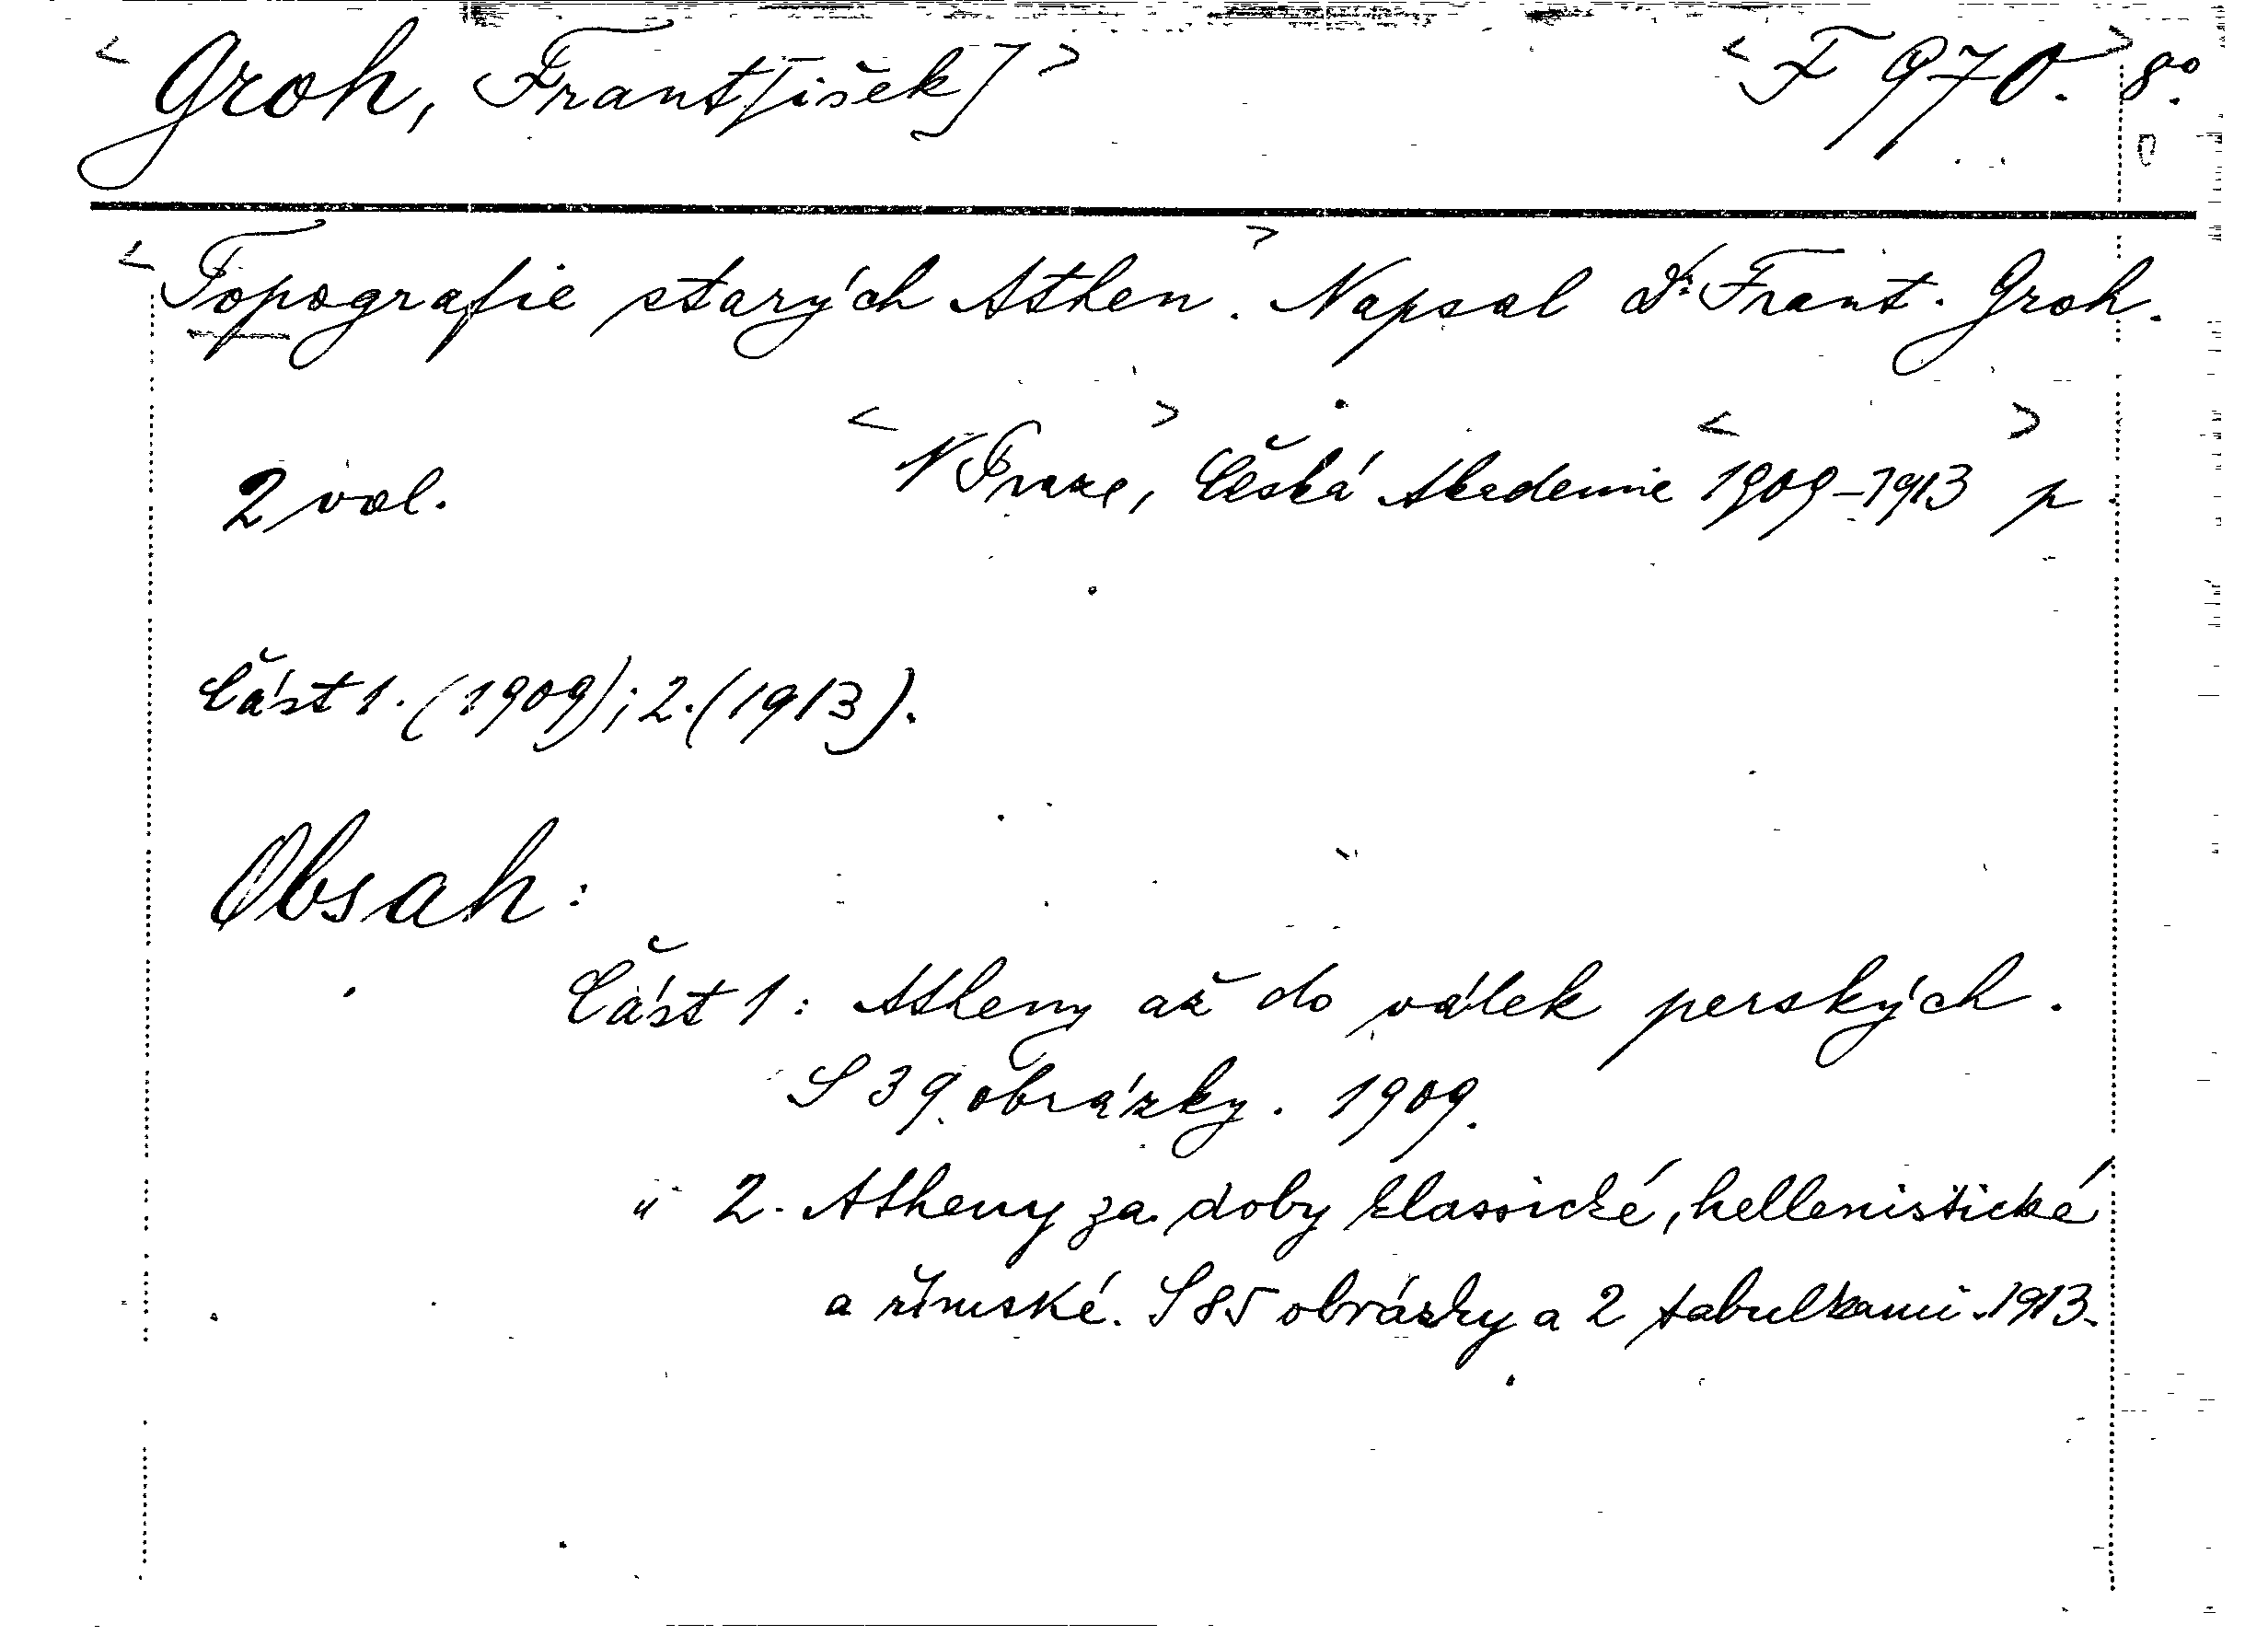 <Groh, Frant[išek]> <F 970.> 8°.
<Topografie starých Athen.> Napsal Dr. Frant. Groh.
2 vol. <V Praze,> Česká Akademie <1909–1913> p.
Část 1. (1909); 2. (1913).
Obsah:
Část 1: Atheny až do válek perských.
S 39 obrázky. 1909.
" 2. Atheny za doby klassické, hellenistické
a římské. S 85 obrázky a 2 tabulkami. 1913.